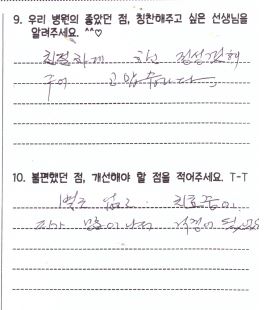 9. 우리 병원의 좋았던 점, 칭찬해주고 싶은 선생님을
알려주세요. ^^♡
친절하게 하고 정성껏해
주어 고맙습니다.
10. 불편했던 점, 개선해야 할 점을 적어주세요. T-T
없고 치료중이
피가 많이 나서 걱정이